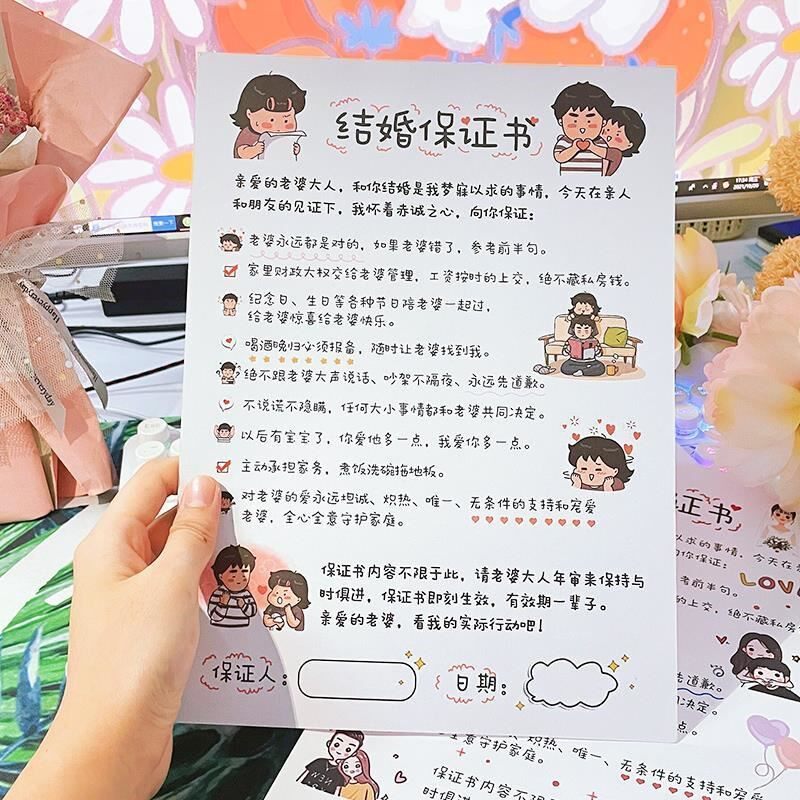 结婚保证书
亲爱的老婆大人，和你结婚是我梦寐以求的事情，今天在亲人
和朋友的见证下，我怀着赤诚之心，向你保证：
老婆永远都是对的，如果老婆错了，参考前半句。
家里财政大权交给老婆管理，工资按时的上交，绝不藏私房钱。
纪念日、生日等各种节日陪老婆一起过，
给老婆惊喜给老婆快乐。
喝酒晚归必须报备，随时让老婆找到我。
绝不跟老婆大声说话、吵架不隔夜、永远先道歉。
不说谎不隐瞒，任何大小事情都和老婆共同决定。
以后有宝宝了，你爱他多一点，我爱你多一点。
主动承担家务，煮饭洗碗拖地板。
对老婆的爱永远坦诚、炽热、唯一、无条件的支持和宠爱
老婆，全心全意守护家庭。
保证书内容不限于此，请老婆大人年审来保持与
时俱进，保证书即刻生效，有效期一辈子。
亲爱的老婆，看我的实际行动吧！
保证人：
日期：
证书
以求的事情，今天在亲
向你保证：
考前半句。
LOVE
的上交，绝不藏私房
先道歉。
决定。
一点。
炽热、唯一、无条件的支持和宠爱
全意守护家庭。
保证书内容不限于此，请老婆大
时俱进，保证书即刻生效
everyday